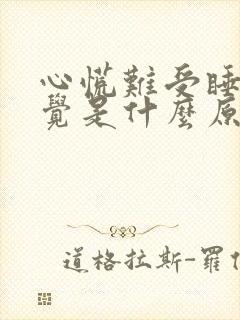 心慌難受睡
覺是什麼原
道格拉斯-羅